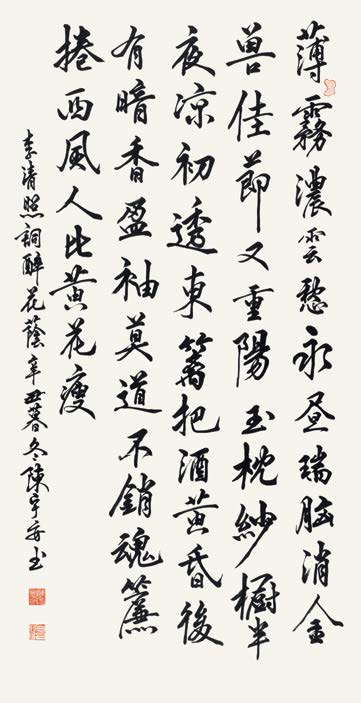 薄霧濃雲愁永昼瑞脑消金
兽佳節又重陽玉枕紗橱半
夜涼初透東篱把酒黄昏後
有暗香盈袖莫道不銷魂簾
捲西風人比黄花瘦
李清照詞醉花蔭辛丑暮冬陳宇安书